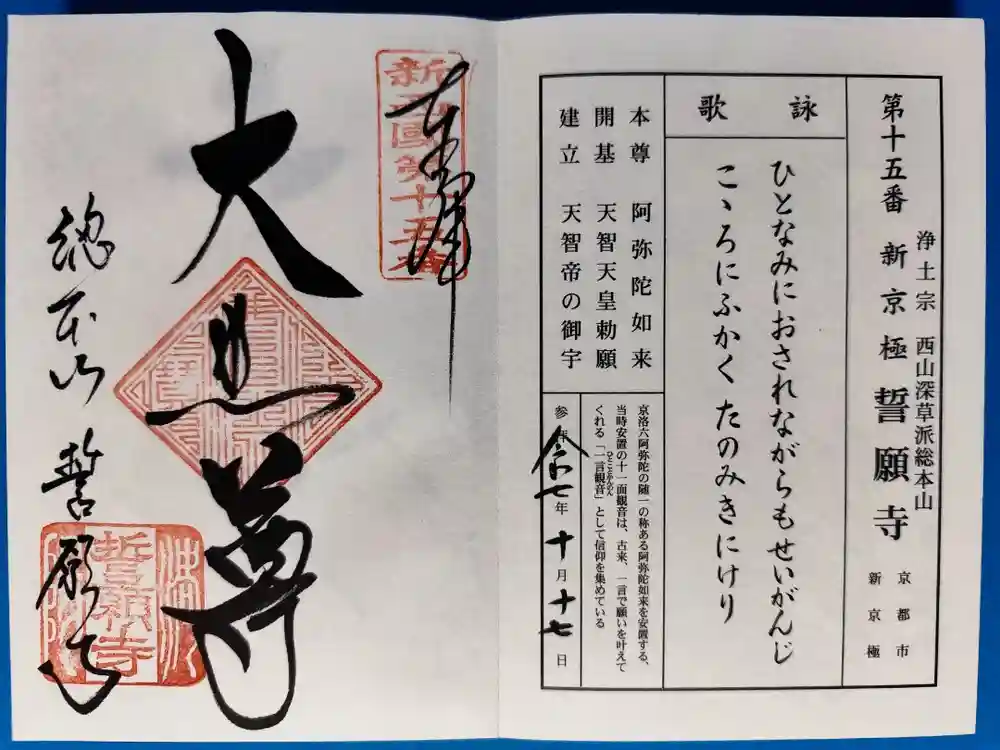 浄土宗 西山深草派総本山
第十五番 新京極 誓願寺
京都市
新京極
詠歌
ひとなみにおされながらもせいがんじ
こゝろにふかくたのみきにけり
本尊 阿弥陀如来
開基 天智天皇勅願
建立 天智帝の御宇
京洛六阿弥陀の随一の称ある阿弥陀如来を安置する、
当時安置の十一面観音は、古来、一言で願いを叶えて
くれる「一言観音」として信仰を集めている
ひとことかんのん
令七年十月十七日
新西國第十五番
奉拝
大悲尊
総本山 誓願寺
誓願寺